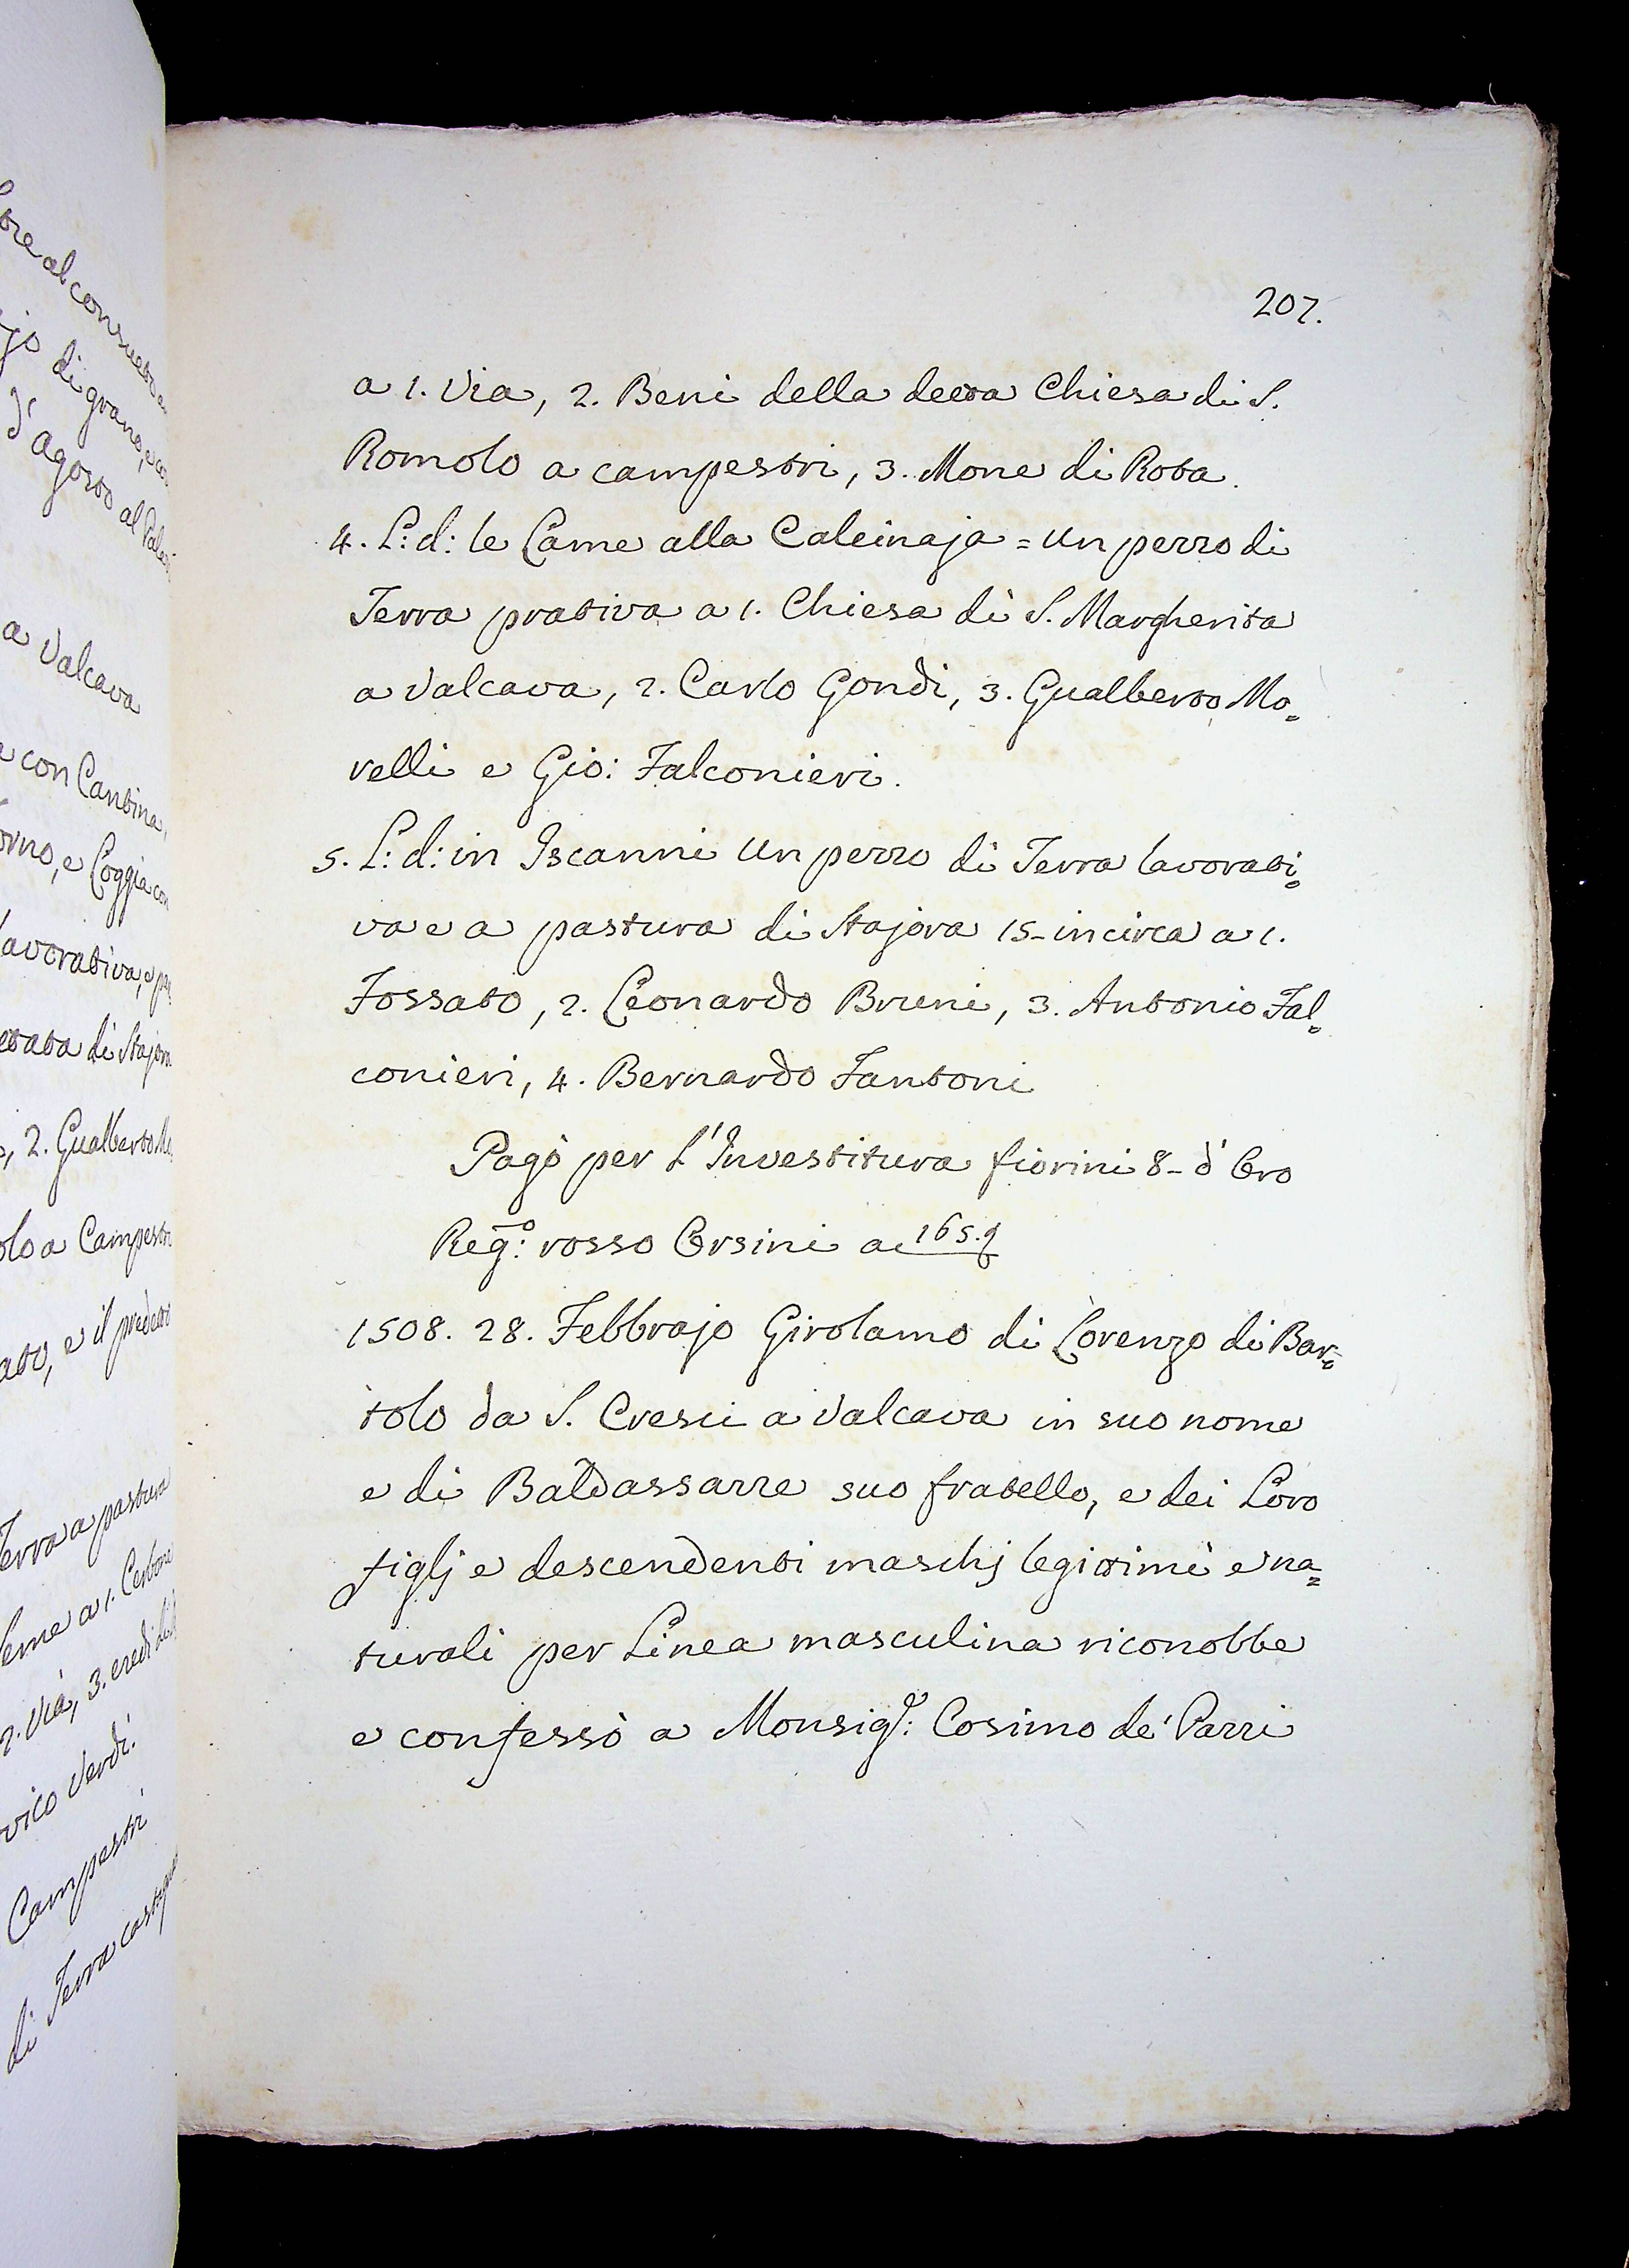 207.
a 1. Via, 2. Beni della detta Chiesa di S.
Romolo a campestri, 3. Mone di Rota.
4. L: d: le Lame alla Calcinaja = un pezzo di
Terra prativa a 1. Chiesa di S. Margherita
a Valcava, 2. Carlo Gondi, 3. Gualberto Mo=
relli e Gio: Falconieri.
5. L: d: in Iscanni un pezzo di Terra lavorati=
va e a pastura di Stajora 15- incirca a 1.
Fossato, 2. Leonardo Bruni, 3. Antonio Fal=
conieri, 4. Bernardo Fantoni
Pagò per L'Investitura fiorini 8- d'Oro
Reg:o rosso Orsini a 165.
1508. 28. Febbrajo Girolamo di Lorenzo di Bar=
tolo da S. Cresci a Valcava in suo nome
e di Baldassarre suo fratello, e dei Loro
figlj e descendenti maschj legittimi e na=
turali per Linea masculina riconobbe
e confessò a Monsigr: Cosimo de' Pazzi
a Valcava
con Cantina,
e Loggia con
lavorativa, e
di Stajora
2. Gualberto
a Campestri
e il predetto
Terra a pastura
2. Via, 3. eredi di
Verdi.
Campestri
di Terra